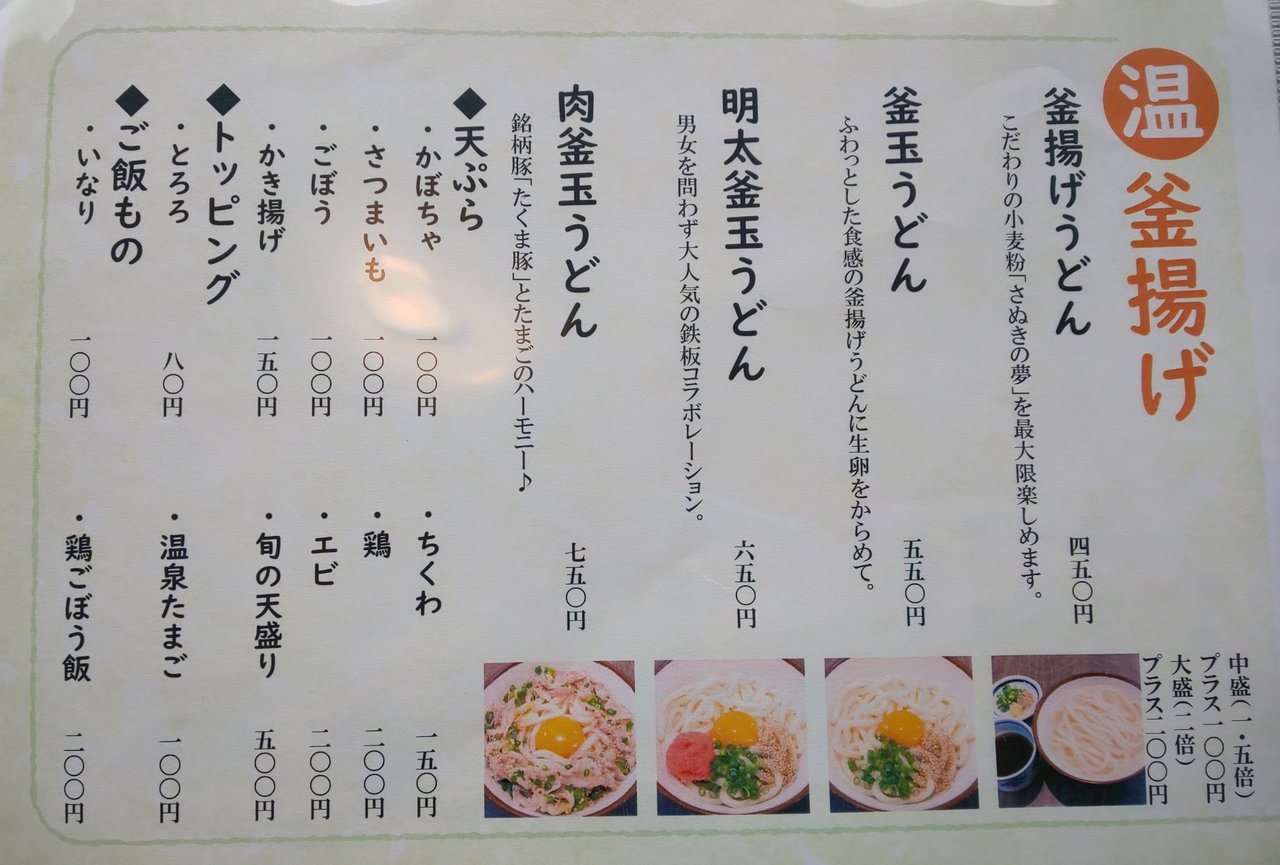 温 釜揚げ
中盛(一・五倍)
プラス一〇〇円
大盛(二倍)
プラス二〇〇円
釜揚げうどん 四五〇円
こだわりの小麦粉「さぬきの夢」を最大限楽しめます。
釜玉うどん 五五〇円
ふわっとした食感の釜揚げうどんに生卵をからめて。
明太釜玉うどん 六五〇円
男女を問わず大人気の鉄板コラボレーション。
肉釜玉うどん 七五〇円
銘柄豚「たくま豚」とたまごのハーモニー♪
◆天ぷら
・かぼちゃ 一〇〇円 ・ちくわ 一五〇円
・さつまいも 一〇〇円 ・鶏 二〇〇円
・ごぼう 一〇〇円 ・エビ 二〇〇円
・かき揚げ 一五〇円 ・旬の天盛り 五〇〇円
◆トッピング
・とろろ 八〇円 ・温泉たまご 一〇〇円
◆ご飯もの
・いなり 一〇〇円 ・鶏ごぼう飯 二〇〇円